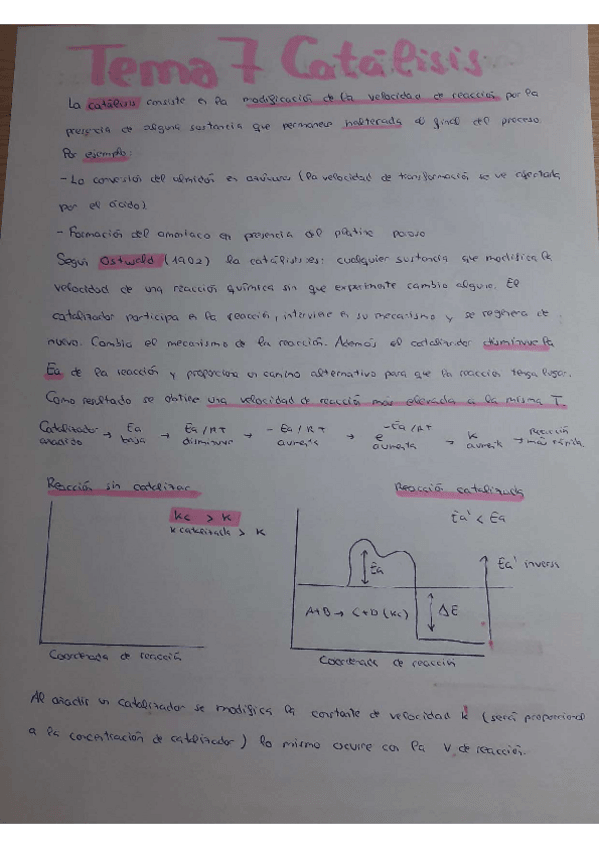 Tema 7 Catálisis
La catálisis consiste en la modificación de la velocidad de reacción por la
presencia de alguna sustancia que permanece inalterada al final del proceso
Por ejemplo:
- La conversión del almidón en azúcares (la velocidad de transformación se ve afectada
por el ácido).
- Formación del amoniaco en presencia del platino poroso
Según Ostwald (1902) la catálisis es: cualquier sustancia que modifica la
velocidad de una reacción química sin que experimente cambio alguno. El
catalizador participa en la reacción, interviene en su mecanismo y se regenera de
nuevo. Cambia el mecanismo de la reacción. Además el catalizador disminuye la
Ea de la reacción y proporciona un camino alternativo para que la reacción tenga lugar.
Como resultado se obtiene una velocidad de reacción más elevada a la misma T.
Catalizador añadido → Ea baja → Ea/RT disminuye → -Ea/RT aumenta → e -Ea/RT aumenta → k aumenta → Reacción más rápida.
Reacción sin catalizar
Reacción catalizada
kc > k
k catalizada > k
Ea' < Ea
Ea
Ea' inversa
A+B → C+D (kc)
ΔE
Coordenada de reacción
Coordenada de reacción
Al añadir un catalizador se modifica la constante de velocidad k (será proporcional
a la concentración de catalizador) lo mismo ocurre con la v de reacción.